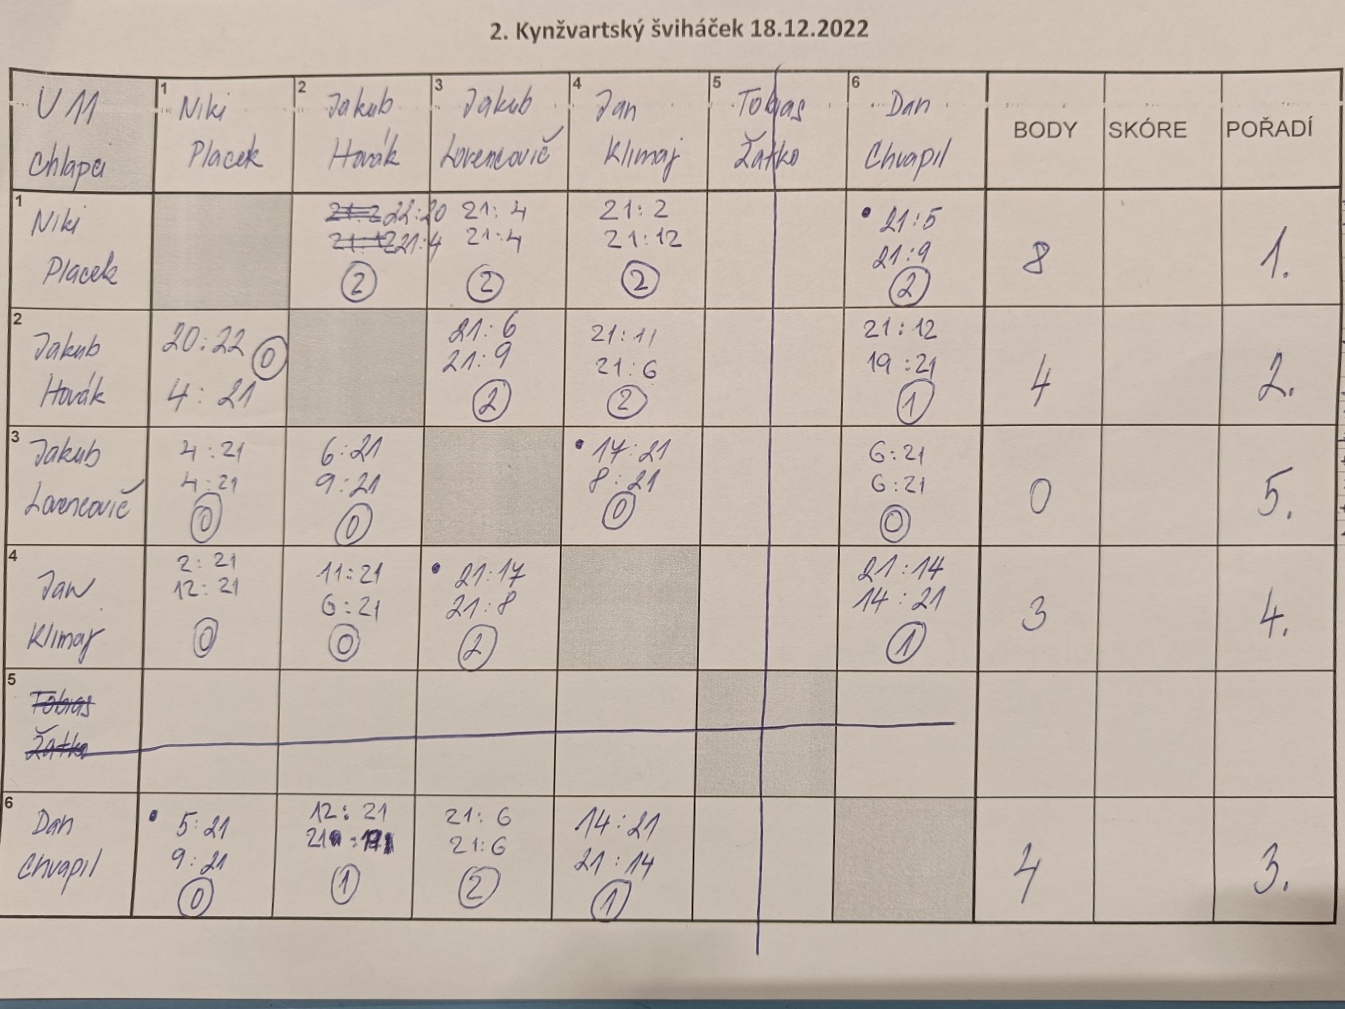 2. Kynžvartský šviháček 18.12.2022
U 11
Chlapci
1 Niki Placek
2 Jakub Novák
3 Jakub Lorencovič
4 Jan Klimaj
5 Tobias Žatko
6 Dan Chvapil
BODY
SKÓRE
POŘADÍ
1 Niki Placek
22:20
21:4
2
21:4
21:4
2
21:2
21:12
2
21:5
21:9
2
8
1.
2 Jakub Novák
20:22
4:21
0
21:6
21:9
2
21:11
21:6
2
21:12
19:21
1
4
2.
3 Jakub Lorencovič
4:21
4:21
0
6:21
9:21
0
17:21
8:21
0
6:21
6:21
0
0
5.
4 Jan Klimaj
2:21
12:21
0
11:21
6:21
0
21:17
21:8
2
21:14
14:21
1
3
4.
5 Tobias Žatko
6 Dan Chvapil
5:21
9:21
0
12:21
1
21:6
21:6
2
14:21
21:14
1
4
3.